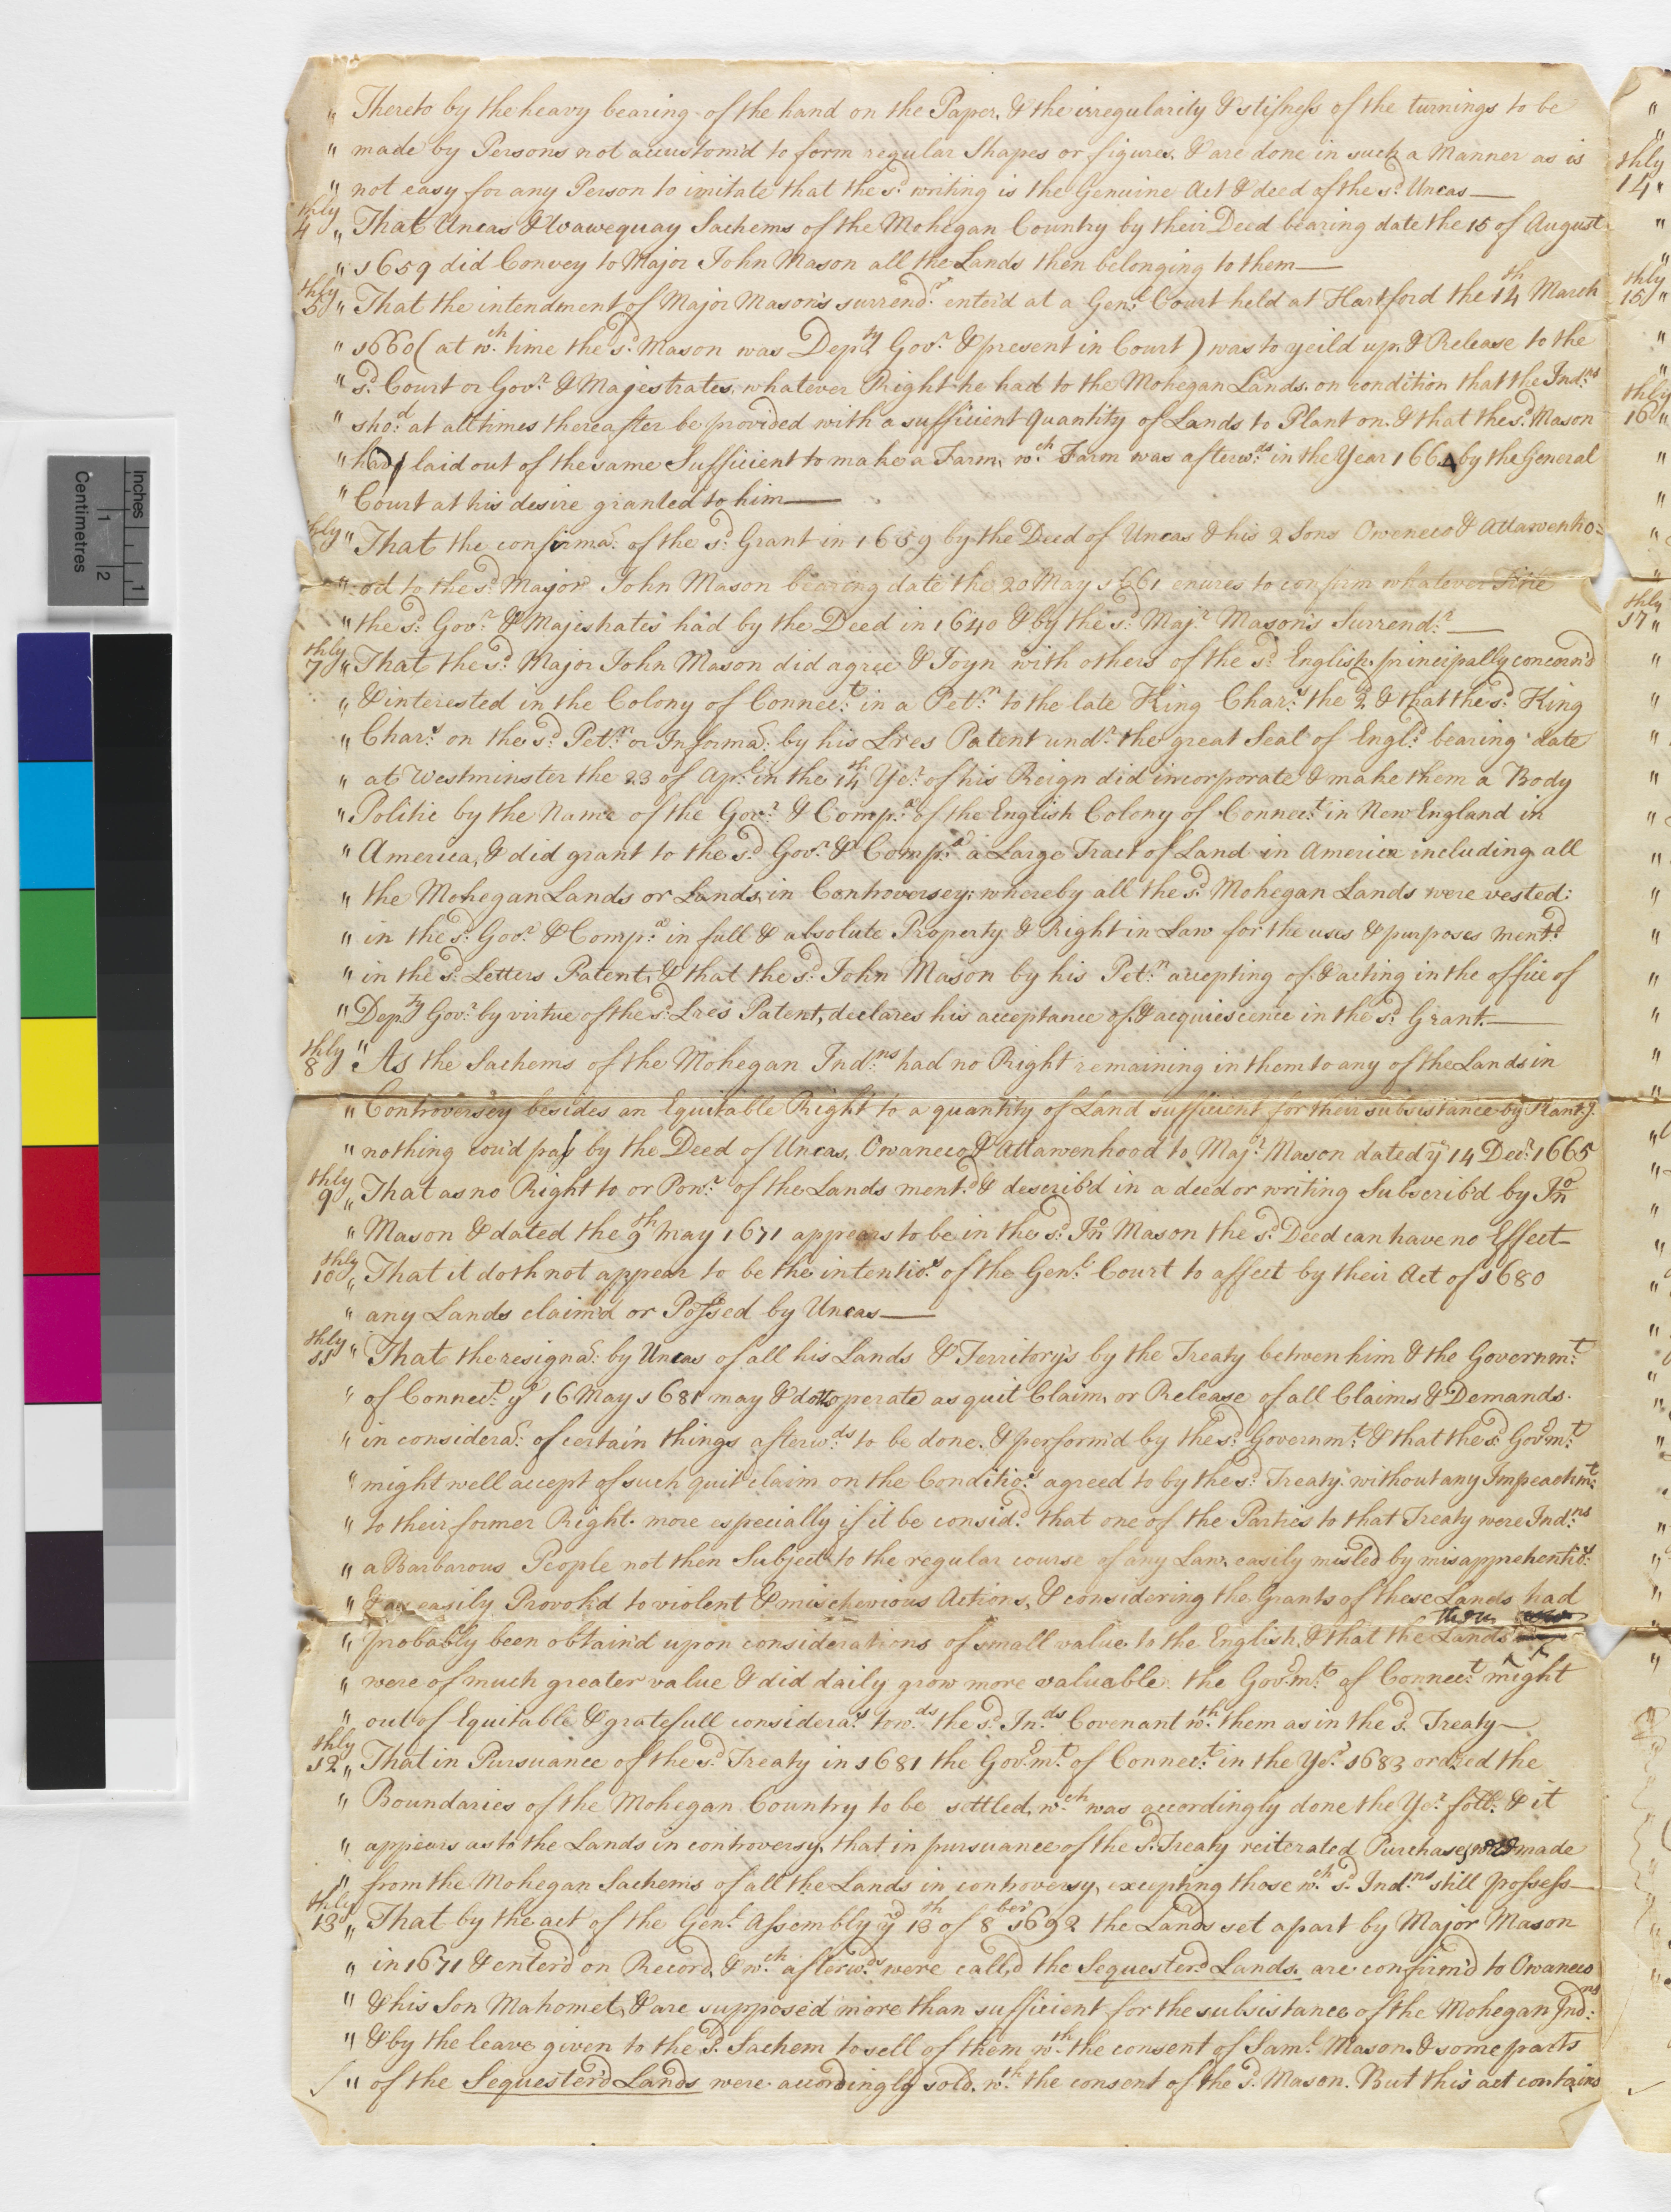 " Thereto by the heavy bearing of the hand on the Paper, & the irregularity & stifness of the turnings to be
" made by Persons not accustom'd to form regular Shapes or figures, & are done in such a Manner as is
" not easy for any Person to imitate that the sd. writing is the Genuine Act & deed of the sd. Uncas—
4thly " That Uncas & Wawequay Sachems of the Mohegan Country by their Deed bearing date the 15 of August
" 1659 did Convey to Major John Mason all the Lands then belonging to them—
5thly " That the intendment of Major Mason's surrendr. enter'd at a Genl. Court held at Hartford the 14th March
" 1660 (at wch. time the sd. Mason was Depty Govr. & present in Court) was to yeild up, & Release to the
" sd. Court or Govr. & Majestrates, whatever Right he had to the Mohegan Lands, on condition that the Indns
" shod. at all times thereafter be provided with a sufficient Quantity of Lands to Plant on, & that the sd. Mason
" had laid out of the same Sufficient to make a Farm, wch. Farm was afterwds in the Year 166 by the General
" Court at his desire granted to him—
thly " That the confirma: of the sd. Grant in 1659 by the Deed of Uncas & his 2 Sons Oweneco & Attawenho=
" :od to the sd. Major John Mason bearing date the 20 May 1661 enures to confirm whatever Title
" the sd. Govr. & Majestrates had by the Deed in 1640 & by the sd. Majr. Mason's Surrendr.—
7thly " That the sd. Major John Mason did agree & Joyn with others of the sd. English, principally concern'd
" & interested in the Colony of Connect. in a Petn. to the late King Chars. the 2d & that the sd. King
" Chars. on the sd. Petn. or Informa: by his Lres Patent undr. the great Seal of Engld. bearing date
" at Westminster the 23 of Apl. in the 14th. Yer. of his Reign did incorporate & make them a Body
" Politic by the Name of the Govr. & Compa. of the English Colony of Connect. in New England in
" America, & did grant to the sd. Govr. & Compa. a Large Tract of Land in America including all
" the Mohegan Lands or Lands in Controversey; whereby all the sd. Mohegan Lands were vested:
" in the sd. Govr. & Compa. in full & absolute Property & Right in Law for the uses & purposes mentd.
" in the sd. Letters Patent, & that the sd. John Mason by his Petn. accepting of, & acting in the office of
" Depty Govr. by virtue of the sd. Lres Patent, declares his acceptance of, & acquiescience in the sd. Grant.—
8thly " As the Sachems of the Mohegan Indns. had no Right remaining in them to any of the Lands in
" Controversey besides an Equitable Right to a quantity of Land sufficient for their subsistance by Plantg.
" nothing cou'd pass by the Deed of Uncas, Owaneco & Attawenhood to Majr. Mason dated ye 14 Decr. 1665
9thly " That as no Right to or Powr. of the Lands mentd. & describ'd in a deed or writing Subscrib'd by Jno
" Mason & dated the 9th May 1671 appears to be in the sd. Jno Mason the sd. Deed can have no Effect—
10thly " That it doth not appear to be the intentios. of the Genl. Court to affect by their Act of 1680
" any Lands claim'd or Possed by Uncas—
11thly " That the resigna: by Uncas of all his Lands & Territory's by the Treaty betwen him & the Governmt.
" of Connect. ye 16 May 1681 may & doth operate as quit Claim, or Release of all Claims & Demands.
" in considera: of certain things afterwds. to be done, & perform'd by the sd. Governmt. & that the sd. Govmt.
" might well accept of such quit claim on the Conditios. agreed to by the sd. Treaty, without any Impeachmt.
" to their former Right. more especially if it be considd. that one of the Parties to that Treaty were Indns
" a Barbarous People not then Subject to the regular course of any Law, easily misled by misapprehentios.
" & as easily Provok'd to violent & mischevious Actions, & considering the Grants of these Lands had
" probably been obtain'd upon considerations of small value to the English, & that the Lands then
" were of much greater value & did daily grow more valuable. the Govmt. of Connect. might
" out of Equitable & gratefull consideras. towds. the sd. Inds. Covenant wth. them as in the sd. Treaty—
12thly " That in Pursuance of the sd. Treaty in 1681 the Govmt. of Connect. in the Yer. 1683 ordred the
" Boundaries of the Mohegan Country to be settled, wch. was accordingly done the Yer. foll: & it
" appears as to the Lands in controversy, that in pursuance of the sd. Treaty reiterated Purchases were made
" from the Mohegan Sachems of all the Lands in controversy, excepting those wch. sd. Indns still possess—
13thly " That by the act of the Genl. Assembly ye 13th of 8ber 1692 the Lands set apart by Major Mason
" in 1671 & enter'd on Record, & wch. afterwds were call'd the Sequester'd Lands, are confirm'd to Owaneco
" & his Son Mahomet, & are suppos'd more than sufficient for the subsistance of the Mohegan Indns:
" & by the leave given to the sd. Sachem to sell of them wth. the consent of Saml. Mason, & some parts
" of the Sequester'd Lands were accordingly sold, wth. the consent of the sd. Mason. But this act contains
thly
14
thly
15
thly
16
thly
17
Inches
1
Centimetres
1
2